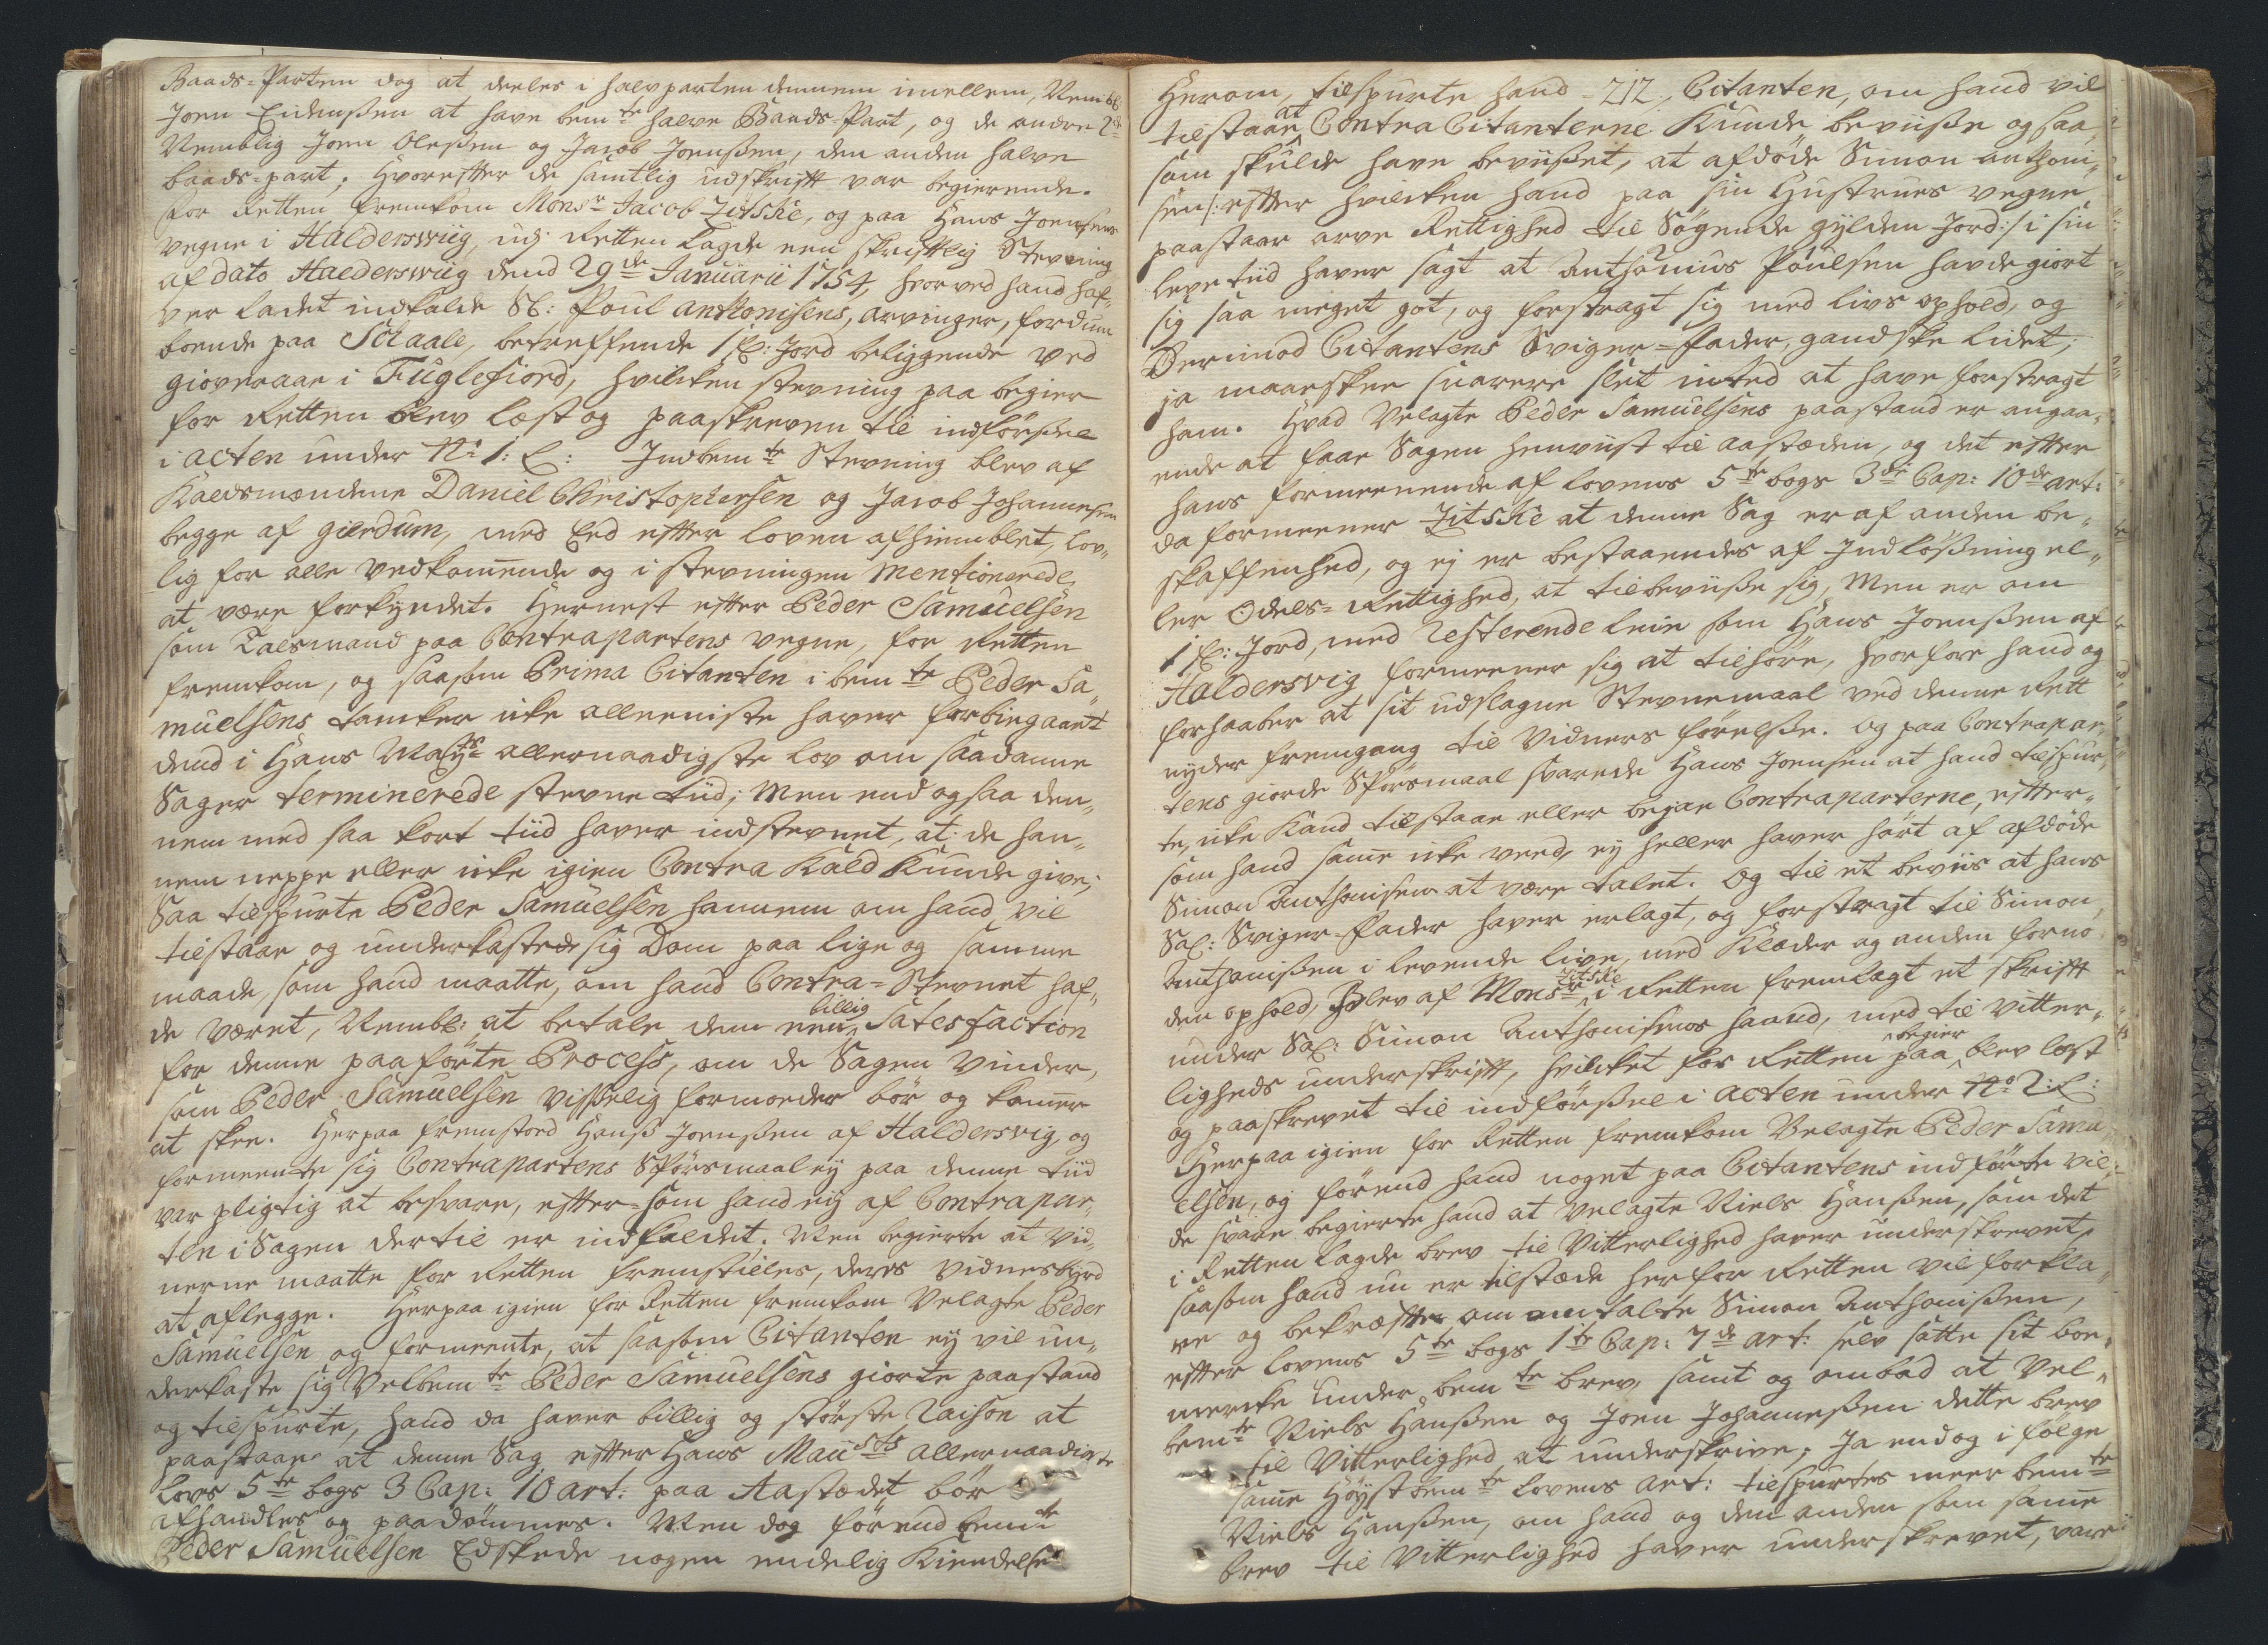 Baads-Parten dog at deeles i halvparten dennem imellem, Nembl:
Joen Eidenssen at have bemte halve Baads-Part, og de andre 2de
Nemblig Joen Olessen og Jacob Joenssen, den anden halve
baads-part. Hvorefter de samtlig udskrift var begierende.
For Retten fremkom Monsr Jacob Zitske, og paa Hans Joensens
vegne i Halderswiig, udj Retten lagde een skriftlig Stevning
af dato Haederswiig dend 29de Januarii 1754, hvorved hand haf„
ver ladet indkalde Sl: Poul Anthonisens, arvinger, fordum
boende paa Selaale, betreffende 1 G: Jord beliggende ved
giovraae i Fuglefiord, hvilken stevning paa begier
for Retten blev læst og paaskreven til indförssel
i acten under No 1: E: Indbemte Stevning blev af
Kaldsmændene Daniel Christophersen og Jacob Johannesen
begge af gierdum, med Eed efter loven afhiemblet, lov„
lig for alle vedkommende og i stevningen mentionerede
at være forkyndet. Hernest efter Peder Samuelsen
som Talsmand paa Contrapartens vegne, for Retten
fremkom, og saasom Prima Citanten i bemte Peder Sa„
muelsens tanker icke alleeniste haver forbiegaaet
dend i Hans Mayts allernaadigste lov om saadanne
Sager terminerede stevne tiid; Men end ogsaa den„
nem med saa kort tiid haver indstevnet, at de han„
nem neppe eller icke igien Contra Kald kunde give;
Saa tilspurte Peder Samuelsen hannem om hand vil
tilstaae og underkaste sig Dom paa lige og samme
maade, som hand maatte, om hand Contra-Stevnet haf„
de været, Nembl: at betale dem een billig Satesfaction
for denne paaförte Process, om de Sagen vinder,
som Peder Samuelsen visselig formoder bör og kommer
at skee. Herpaa fremstod Hanss Joenssen af Haldersvig, og
formeente sig Contrapartens Spörsmaal ey paa denne tiid
var pligtig at besvare, efter-som hand ey af Contrapar„
ten i Sagen dertil er indkaldet. Men begierte at Vid„
nerne maatte for Retten fremstilles, deres vidnesbyrd
at aflegge. Herpaa igien for Retten fremkom Velagte Peder
Samuelsen og formeente, at saasom Citanten ey vil un„
derkaste sig Velbemte Peder Samuelsens giorte paastand
og tilspurte, hand da haver billig og störste Raison at
paastaae at denne Sag efter Hans Mausts allernaadigste
lovs 5te bogs 3 Cap: 10 art: paa Aastædet bör
afhandles og paadömmes. Men dog förend bemte
Peder Samuelsen Edskede nogen endelig Kiendelse
Herom, tilspurte hand 212, Citanten, om hand vil
tilstaae at Contra Citanterne Kunde beviisse ogsaa
som skulde have beviisset, at afdöde Simon Anthoni„
sen /: efter hvilcken hand paa sin Hustrues vegne
paastaar arve Rettighed til Sögende gylden Jord :/ i sin
leve tiid haver sagt at Anthonius Poulsen havde giort
sig saa meget got, og forstragt sig med livs ophold, og
Derimod Citantens Sviger-Fader, gandske lidet;
ja maaeskee snarere slet inted at have forstragt
ham. Hvad Velagte Peder Samuelsens paastand er angaa„
ende at faae Sagen henviist til aastæden, og det efter
hans formeenende af lovens 5te bogs 3de Cap: 10de art:
da formeener Zitske at denne Sag er af anden be„
skaffenhed, og ey er bestaaendes af Indlössning el„
ler Odels-Rettighed, at tilbeviisse sig, Men er om
1 G: Jord, med Resterende leie som Hans Joenssen af
Haldersvig formeener sig at tilhöre, hvorfore hand og
forhaaber at sit udslagne Stevnemaal ved denne Rett
nyder fremgang til Vidners förelsse. Og paa Contrapar„
tens giorde Spörsmaal svarede Hans Joensen at hand tilspur„
te, icke Kand tilstaae eller bejae Contraparterne, efter„
som hand samme icke veed, ey heller haver hört af afdöde
Simon Anthonisen at være talet. Og til et beviis at hans
Sal: Sviger-Fader haver erlagt, og forstragt til Simon
Anthonissen i levende live, med Klæder og anden fornö
den ophold, blev af Monsr Zitske i Retten fremlagt et skrift
under Sal: Simon Anthonisens haand, med til vitter„
ligheds underskrift, hvilcket for Retten paa begier blev læst
og paaskrevet til indförssel i acten under No 2: E:
Herpaa igien for Retten fremkom Velagte Peder Samu„
elsen, og förend hand noget paa Citantens indförte vil„
de svare begierte hand at Velagte Niels Hanssen, som det
i Retten lagde brev til Vitterlighed haver underskrevet,
saasom hand nu er tilstæde her for Retten vil forkla„
re og bekræfte om omtalte Simon Anthonissen,
efter lovens 5te bogs 1te Cap: 7de art: selv satte sit boe„
mercke under bemte brev, samt og ombad at Vel„
bemte Niels Hanssen og Joen Johannessen dette brev
til Vitterlighed at underskrive; Ja end og i fölge
samme Höystbemte lovens art: tilspurtes meer bemte
Niels Hanssen, om hand og den anden som samme
brev til Vitterlighed haver underskrevet, vare